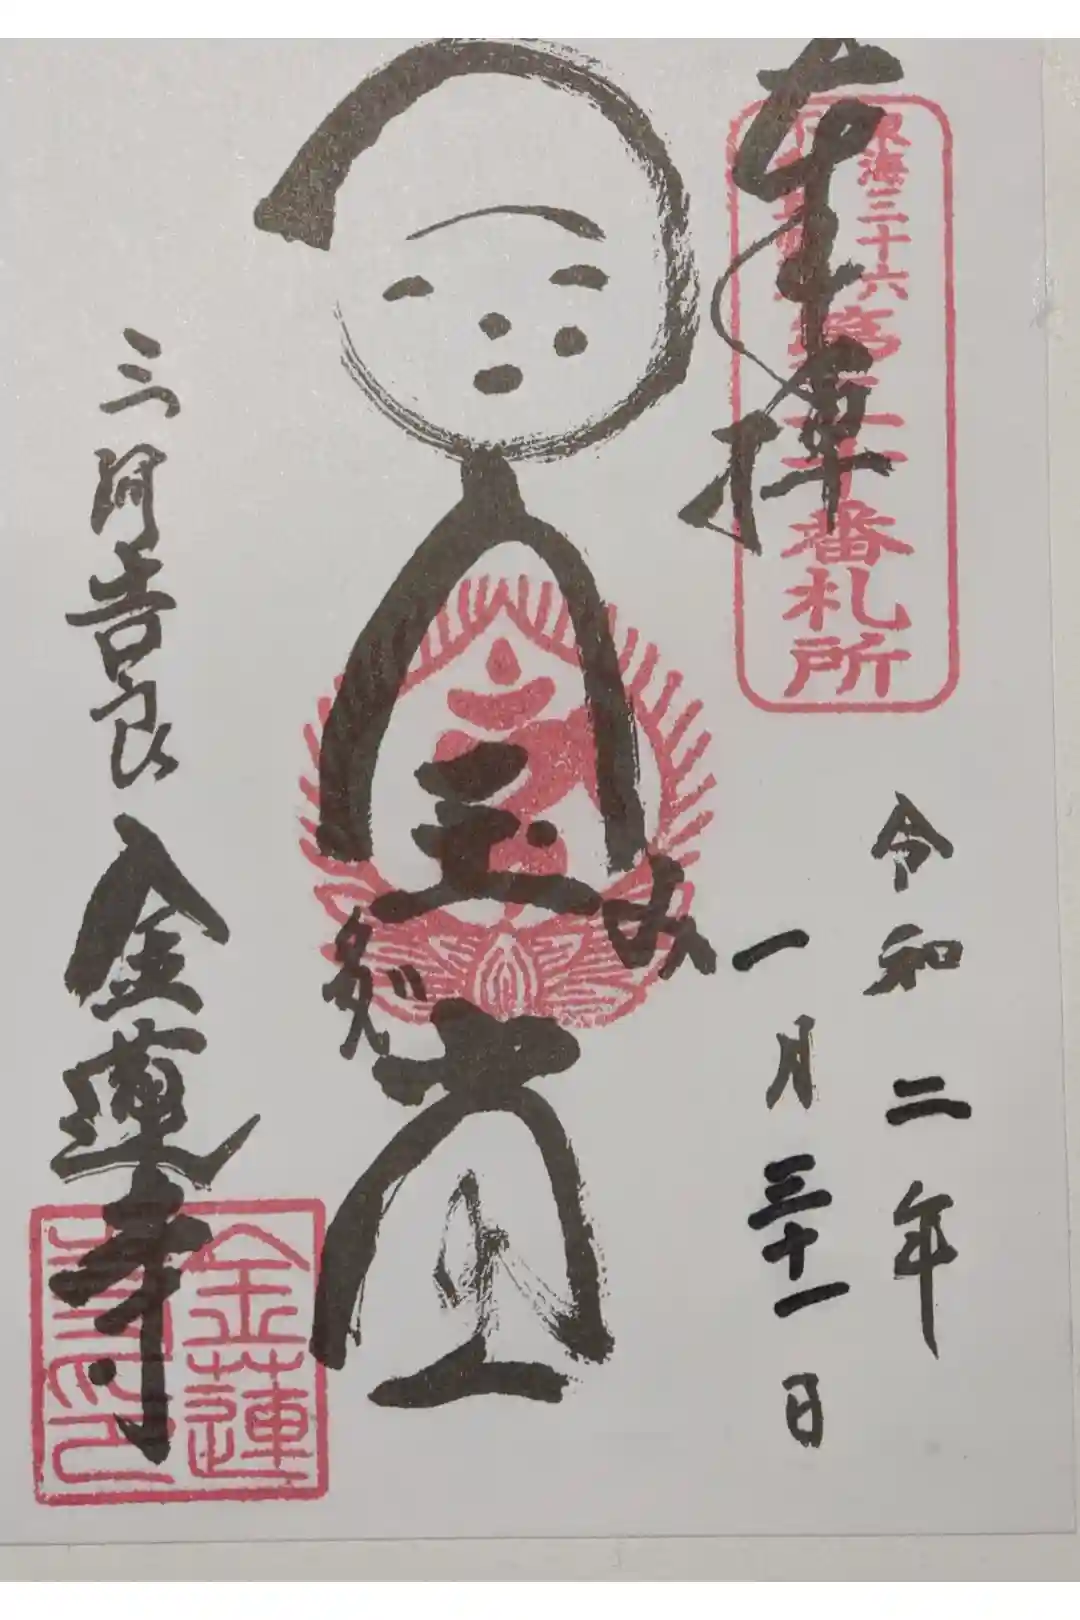 奉拝
東海三十六
第二十番札所
令和二年
一月三十一日
三河吉良
金蓮寺
金蓮
寺印